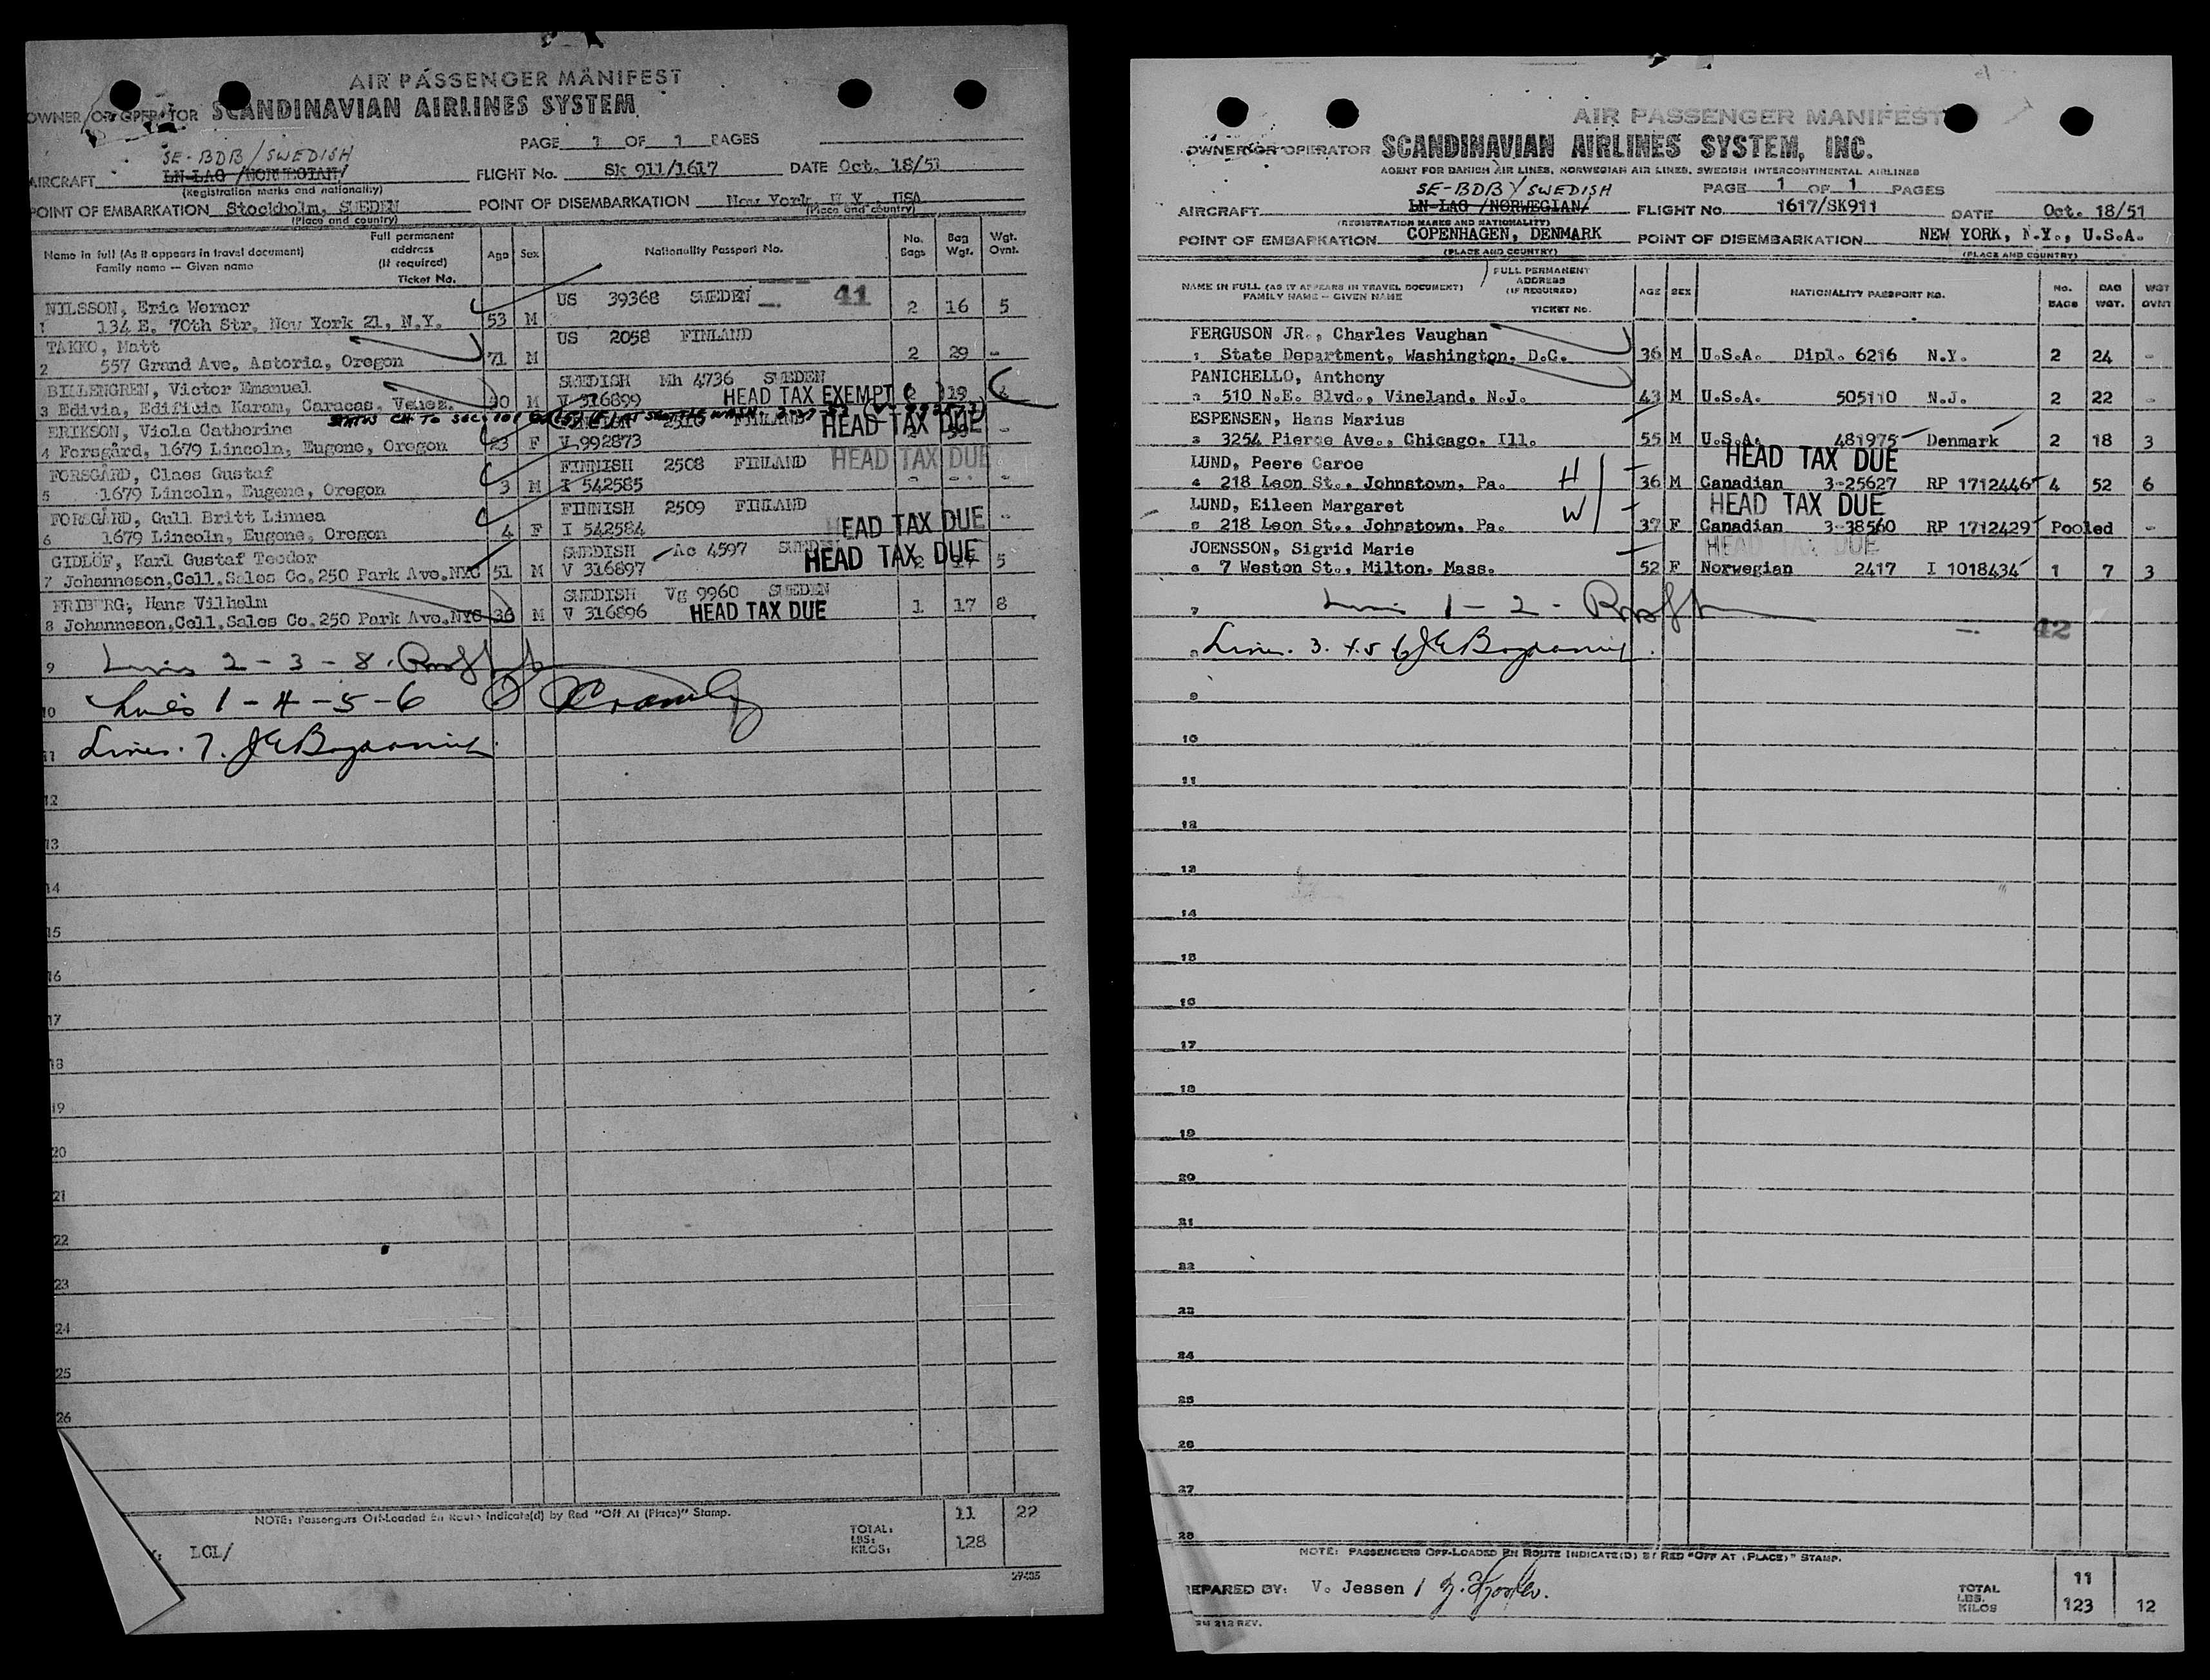 AIR PASSENGER MANIFEST
OWNER OR OPERATOR SCANDINAVIAN AIRLINES SYSTEM
PAGE 1 OF 1 PAGES
SE-BDB/SWEDISH
AIRCRAFT LN-LAG /NORWEGIAN/ FLIGHT No. SK 911/1617 DATE Oct. 18/51
(Registration marks and nationality)
POINT OF EMBARKATION Stockholm, SWEDEN POINT OF DISEMBARKATION New York, N.Y., USA
(Place and country) (Place and country)
Name in full (As it appears in travel document) Family name — Given name Full permanent address (If required) Ticket No. Age Sex Nationality Passport No. No. Bags Bag Wgt. Wgt. Ovnt.
NILSSON, Eric Werner US 39368 SWEDEN 41
1 134 E. 70th Str. New York 21, N.Y. 53 M 2 16 5
TAKKO, Matt US 2058 FINLAND
2 557 Grand Ave, Astoria, Oregon 71 M 2 29 -
BILLENGREN, Victor Emanuel SWEDISH Mh 4736 SWEDEN
3 Edivia, Edificia Karam, Caracas, Venez. M V 316899 HEAD TAX EXEMPT 2 19
STATUS CH TO SEC. 101
ERIKSON, Viola Catherine 2510 FINLAND HEAD TAX DUE
4 Forsgård, 1679 Lincoln, Eugene, Oregon 23 F V 992873 -
FORSGÅRD, Claes Gustaf FINNISH 2508 FINLAND HEAD TAX DUE
5 1679 Lincoln, Eugene, Oregon 3 M I 542585 - - -
FORSGÅRD, Gull Britt Linnea FINNISH 2509 FINLAND
6 1679 Lincoln, Eugene, Oregon 4 F I 542584 HEAD TAX DUE -
GIDLÖF, Karl Gustaf Teodor SWEDISH Ac 4597 SWEDEN
7 Johanneson, Coll. Sales Co. 250 Park Ave. NYC 51 M V 316897 HEAD TAX DUE 5
FRIBERG, Hans Vilhelm SWEDISH Vg 9960 SWEDEN
8 Johanneson, Coll. Sales Co. 250 Park Ave. NYC 36 M V 316896 HEAD TAX DUE 1 17 8
9 Lines 2 - 3 - 8.
10 Lines 1 - 4 - 5 - 6
11 Lines. 7.
12
13
14
15
16
17
18
19
20
21
22
23
24
25
26
NOTE: Passengers Off-Loaded En Route Indicate(d) by Red "Off At (Place)" Stamp.
TOTAL: 11 22
LBS:
KILOS: 128
LGL/
27435
AIR PASSENGER MANIFEST
OWNER OR OPERATOR SCANDINAVIAN AIRLINES SYSTEM, INC.
AGENT FOR DANISH AIR LINES, NORWEGIAN AIR LINES, SWEDISH INTERCONTINENTAL AIRLINES
SE-BDB/SWEDISH PAGE 1 OF 1 PAGES
AIRCRAFT LN-LAG /NORWEGIAN/ FLIGHT No. 1617/SK911 DATE Oct. 18/51
(REGISTRATION MARKS AND NATIONALITY)
POINT OF EMBARKATION COPENHAGEN, DENMARK POINT OF DISEMBARKATION NEW YORK, N.Y., U.S.A.
(PLACE AND COUNTRY) (PLACE AND COUNTRY)
NAME IN FULL (AS IT APPEARS IN TRAVEL DOCUMENT) FAMILY NAME — GIVEN NAME FULL PERMANENT ADDRESS (IF REQUIRED) TICKET No. AGE SEX NATIONALITY PASSPORT NO. No. BAGS BAG WGT. WGT OVNT
FERGUSON JR., Charles Vaughan
1 State Department, Washington, D.C. 36 M U.S.A. Dipl. 6216 N.Y. 2 24 -
PANICHELLO, Anthony
2 510 N.E. Blvd., Vineland, N.J. 43 M U.S.A. 505110 N.J. 2 22 -
ESPENSEN, Hans Marius
3 3254 Pierce Ave., Chicago, Ill. 55 M U.S.A. 481975 Denmark 2 18 3
LUND, Peere Caroe HEAD TAX DUE
4 218 Leon St., Johnstown, Pa. H 36 M Canadian 3-25627 RP 1712446 4 52 6
LUND, Eileen Margaret HEAD TAX DUE
5 218 Leon St., Johnstown, Pa. W 37 F Canadian 3-38560 RP 1712429 Pooled -
JOENSSON, Sigrid Marie HEAD TAX DUE
6 7 Weston St., Milton, Mass. 52 F Norwegian 2417 I 1018434 1 7 3
7 Lines 1 - 2 -
42
8 Lines. 3. 4. 5 6
9
10
11
12
13
14
15
16
17
18
19
20
21
22
23
24
25
26
27
28
NOTE: PASSENGERS OFF-LOADED EN ROUTE INDICATE(D) BY RED "OFF AT (PLACE)" STAMP.
PREPARED BY: V. Jessen /
TOTAL 11
LBS.
KILOS 123 12
212 REV.